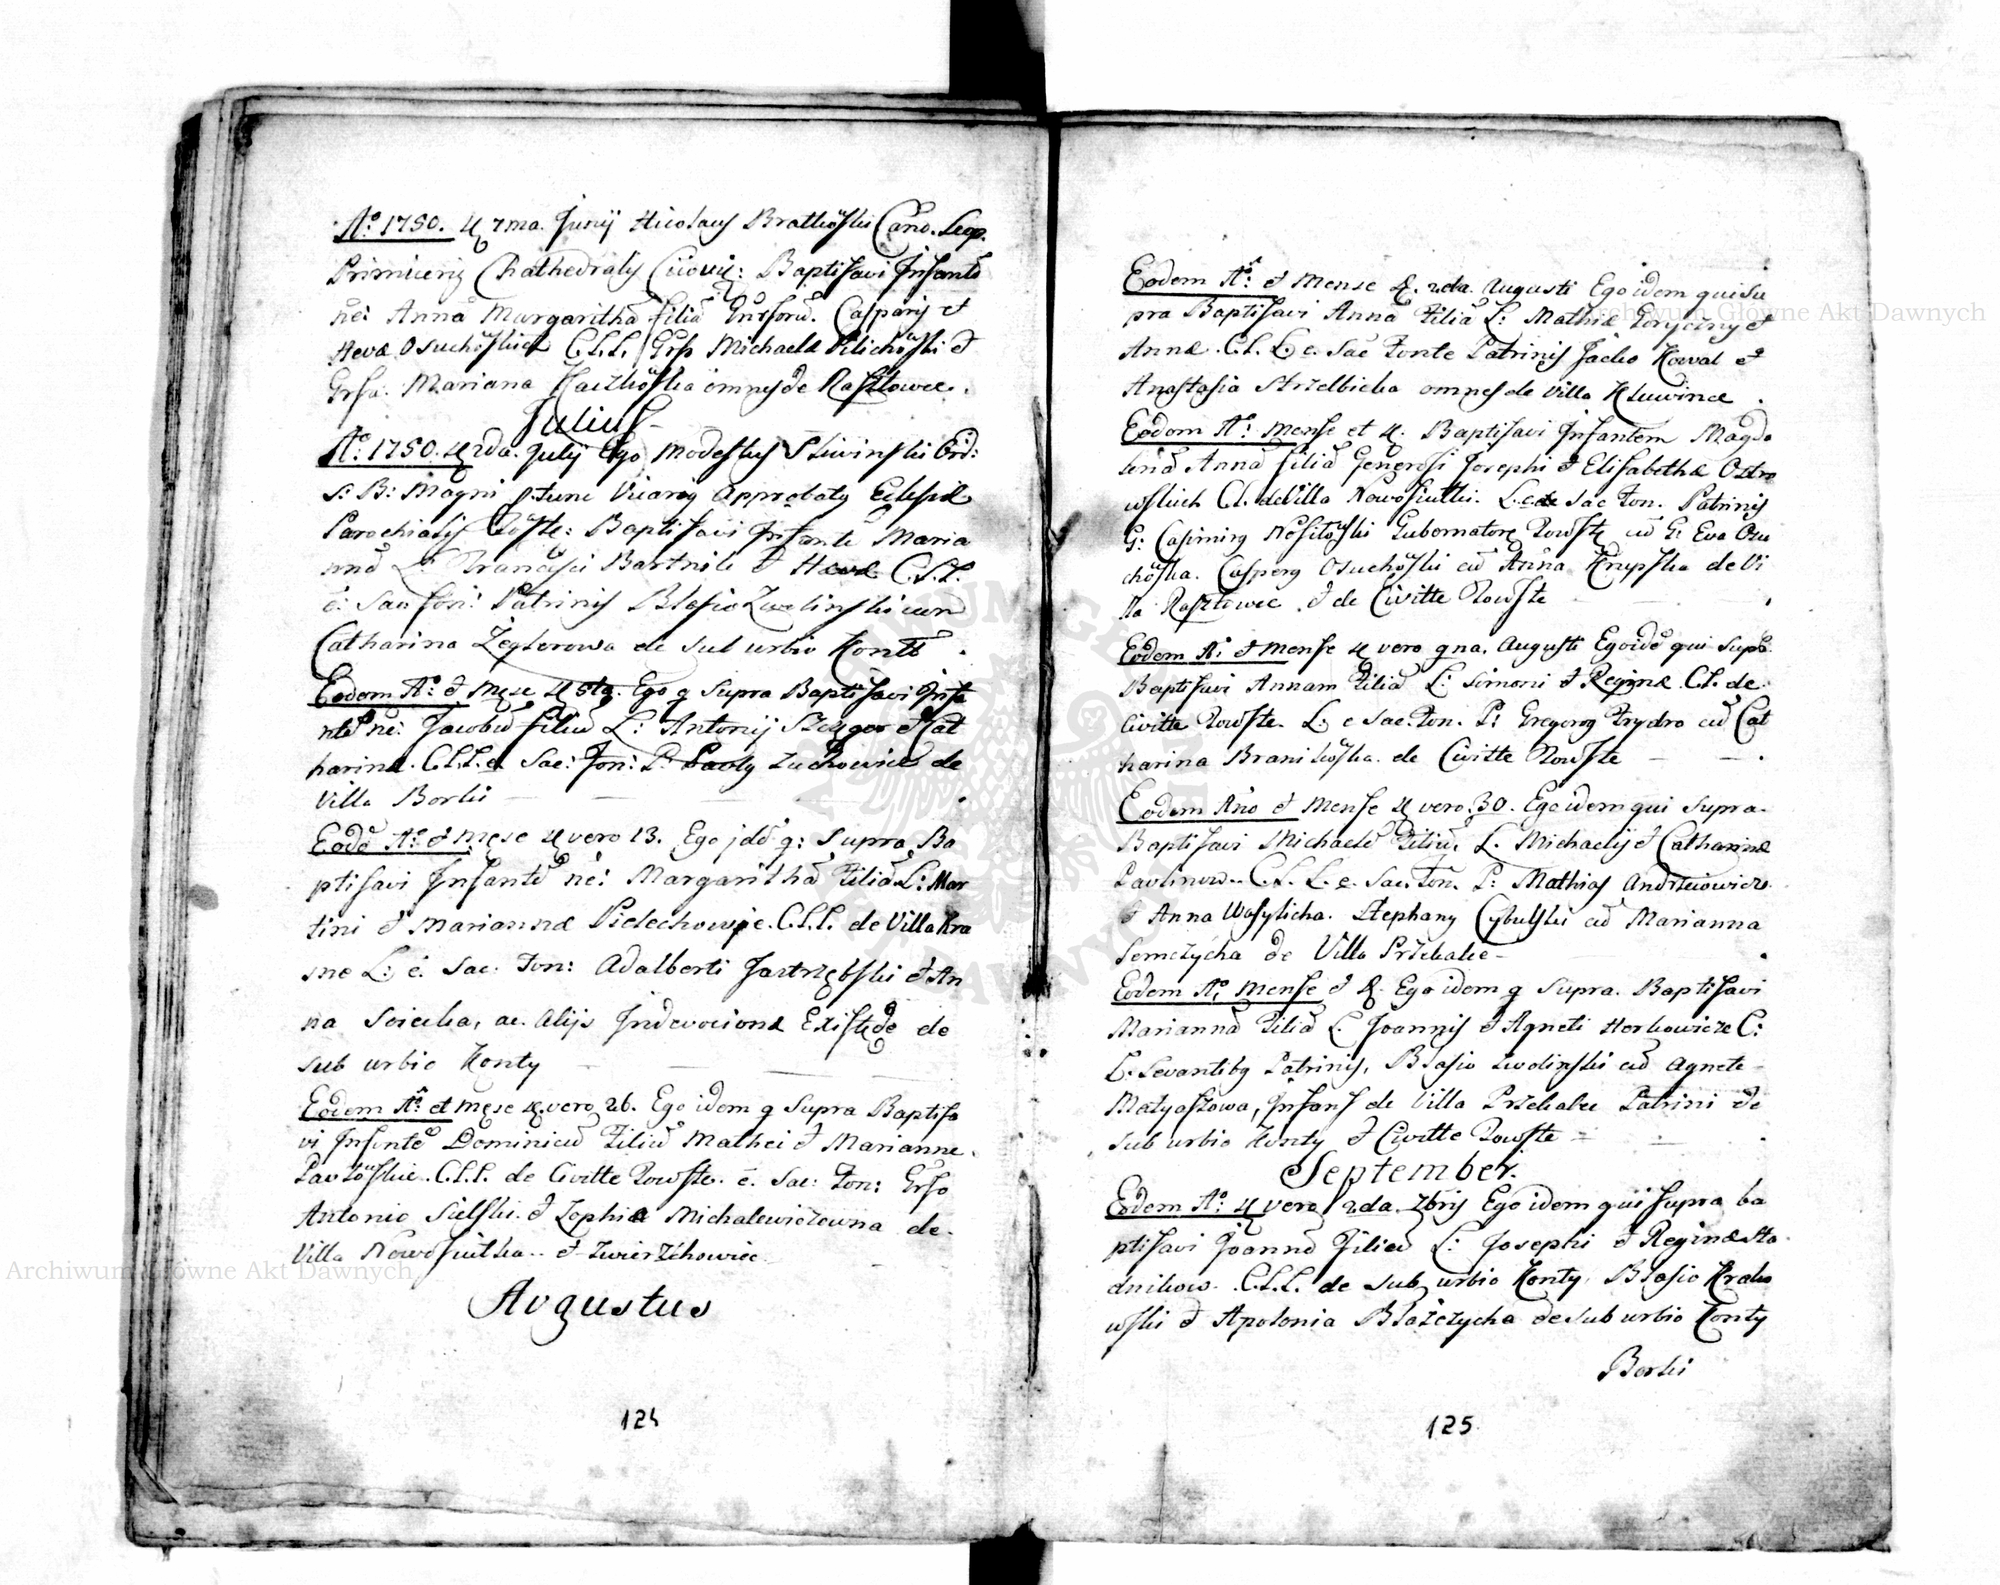 Aº 1750. 7ma. Junij Nicolaus Bratkowski Cano. Leop.
Primicerig Chathedralis Baptisavi Infantē
nē: Annā Margarithā filiā Caspari et
Hevæ Osuchowskich C.L.L. Grsi Michaele Pilichowski et
Grsa. Mariana Kaczkowska omnes de Rasztowce.
Julius
Aº 1750. 2da. Julij Ego Modestus Sliwinski Ord:
S: B: Magni ptunc Vicarig Approbatg Eclesiæ
Parochialis Baptisavi Infantē Maria
nnā L: Francisci Bartnik et Hævæ C.L.L.
ē: Sac fon: Patrinis Blasio Zwolinski cum
Catharina Zeglerowa de sub urbio Konty
Eodem Aº: et Mēse 5ta. Ego q supra Baptisavi Infa
ntē nē: Jacobū filiū L: Antonij et Cat
harinæ. C.L.L. e Sac: Fon: P: Pavlg Zuchowicz de
Villa Borki
Eodē Aº: et Mēse vero 13. Ego jdē q: Supra Ba
ptisavi Infantē nē: Margarithā Filiā L: Mar
tini et Mariannæ C.L.L. de Villa Kra
sne L: ē. Sac: Fon: Adalberti Jastrzębski et An
na Soicka, ac. Alijs Indevocionæ Existēde de
Sub urbio Konty
Eodem Aº et Mēse vero 26. Ego idem q Supra Baptisa
vi Infantē Dominicū Filiū Mathei et Marianne
Pawłowskie. C.L.L. de Civitte ē. Sac: Fon: Grso
Antonio Sielski. et Zophia Michalewiczowna de
Villa Nowosiułka.. et Zwierzchowiec
Avgustus
124
Eodem Aº: et Mense 2da. Augusti Ego idem qui Su
pra Baptisavi Anna Filiā L: Mathiæ et
Annæ. C.L.L. e. Sac Fonte Patrinis Jacko Kowal et
Anastasia Strzelbicka omnes de Villa Kluwince
Eodem Aº: Mense et Baptisavi Infantem Magda
lenā Annā filiā Generosi Josephi et Elisabethæ Ostro
wskich C.L. de Villa Nowosiułki. L. e de Sac Fon. Patrinis
G: Casimirg Gubernatorę cū G: Eva Osu
chowska. Casperg Osuchowski cū Anna Krupska de Vi
lla Rasztowec et de Civitte
Eodem Aº: et Mense vero 9na. Augusti Ego idē qui Supra
Baptisavi Annam Filiā L: Simoni et Reginæ C.L. de
Civitte L: e Sac. Fon. P: Gregorg Frydro cū Cat
harina Branikowska de Civitte
Eodem Año et Mense vero 30. Ego idem qui Supra
Baptisavi Michaelē Filiū L. Michaelij et Catharinæ
Pavlinow. C.L.L. e. Sac. Fon. P: Mathias Andrzeiowicz
et Anna Wasylicha. Stephang Cybulski cū Marianna
Semczycha de Villa Przekalie
Eodem Aº. Mense et Ego idem q Supra. Baptisavi
Mariannā Filiā L. Joannis et Agneti Horkowicze C:
L. Levantibg Patrinis, Blasio Zwolinski cū Agnete
Matyaszowa, Infans de Villa Przekalec Patrini de
Sub urbio Konty et Civitte
September.
Eodem Aº: vero 2da. 7bris Ego idem qui supra ba
ptisavi Joannē Filiū L: Josephi et Reginæ Sta
dnikow. C.L.L. de Sub urbio Konty. Blasio Krako
wski et Apolonia Błażczycha de sub urbio Konty
Borki
125
Archiwum Główne Akt Dawnych
Archiwum Główne Akt Dawnych